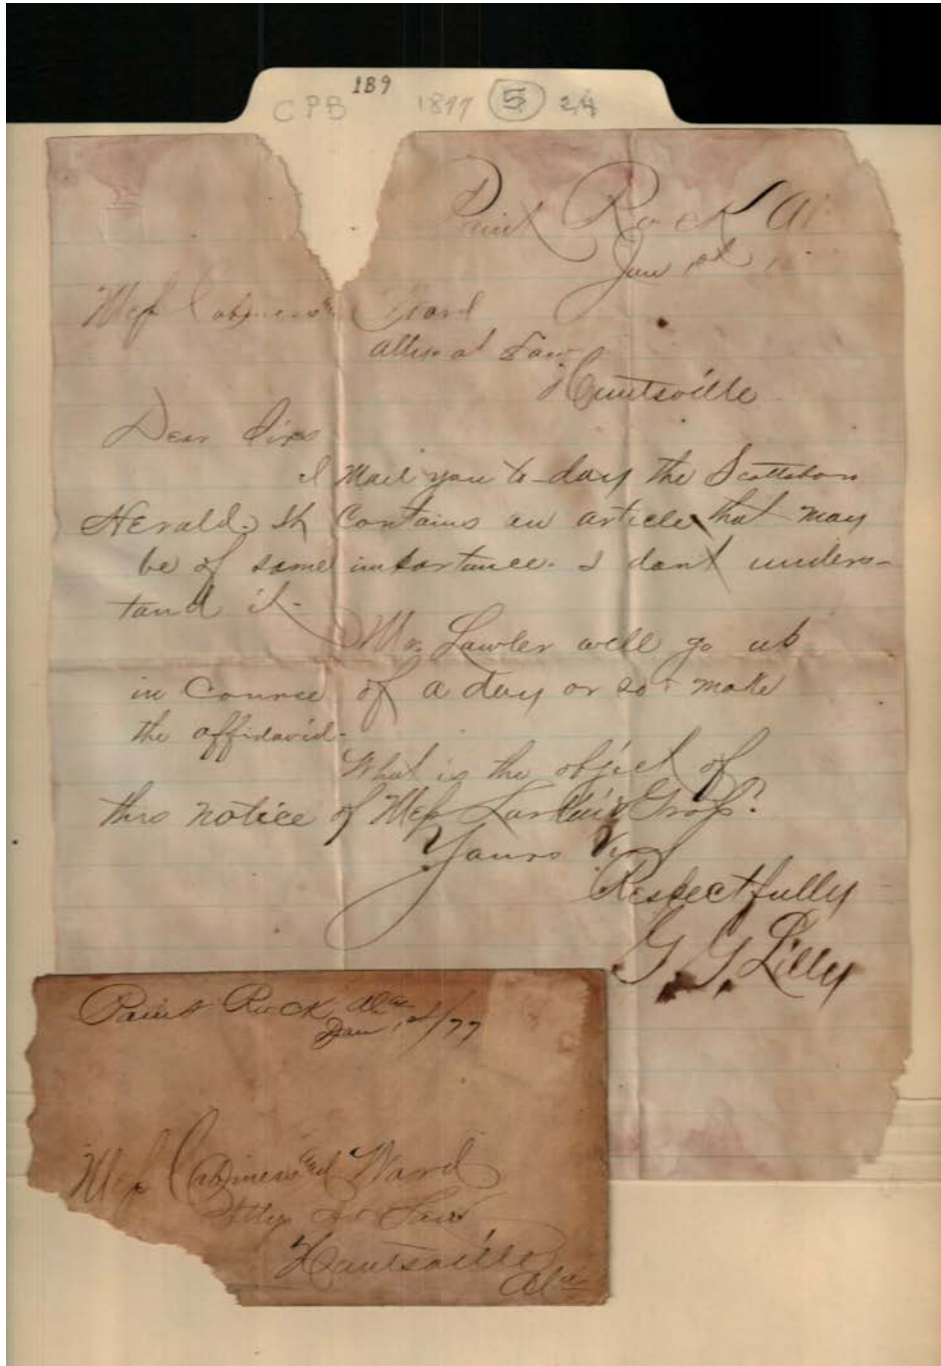 189
CPB 1877 5 24
Paint Rock Al
Jan 1st
Mess Cabiness & Ward
Attys at Law
Huntsville
Dear Sirs
I Mail you to-day the Scottsboro
Herald. It Contains an article that may
be of some importance. I dont unders-
tand it.
Mr. Lawler will go up
in Course of a day or so & make
the affidavid-
What is the object of
this notice of Mess Larkin & Gross?
Yours V.
Respectfully
G. G. Lilly
Paint Rock Ala
Jan 1st/77
Mess Cabiness and Ward
Attys at Law
Huntsville
Ala